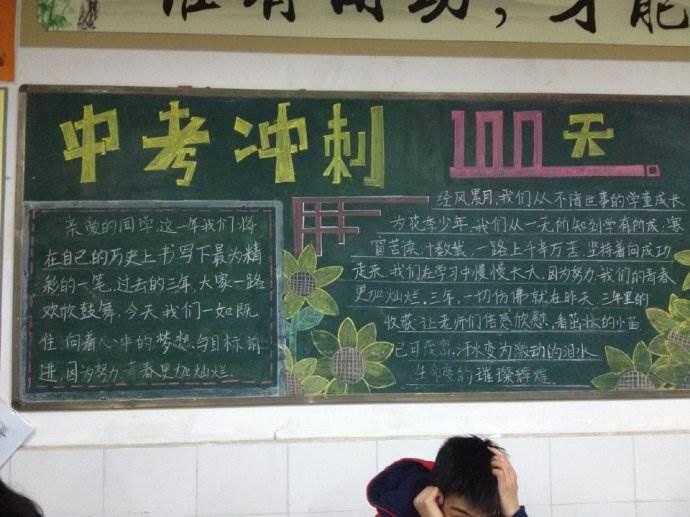 中考冲刺 100天
亲爱的同学这一年我们将
在自己的历史上书写下最为精
彩的一笔.过去的三年,大家一路
欢欣鼓舞.今天.我们一如既
往.向着心中的梦想.与目标前
进.因为努力.青春更加灿烂.
经风黑月.我们从不谙世事的学童成长
为花季少年.我们从一无所知到学有所成.寒
窗苦读.十数载.一路上千辛万苦.坚持着向成功
走来.我们在学习中慢慢长大.因为努力.我们的青春
更加灿烂.三年.一切仿佛就在昨天.三年里的
收获.让老师们倍感欣慰.看茁壮的小苗
汗水变为激动的泪水
璀璨辉煌.